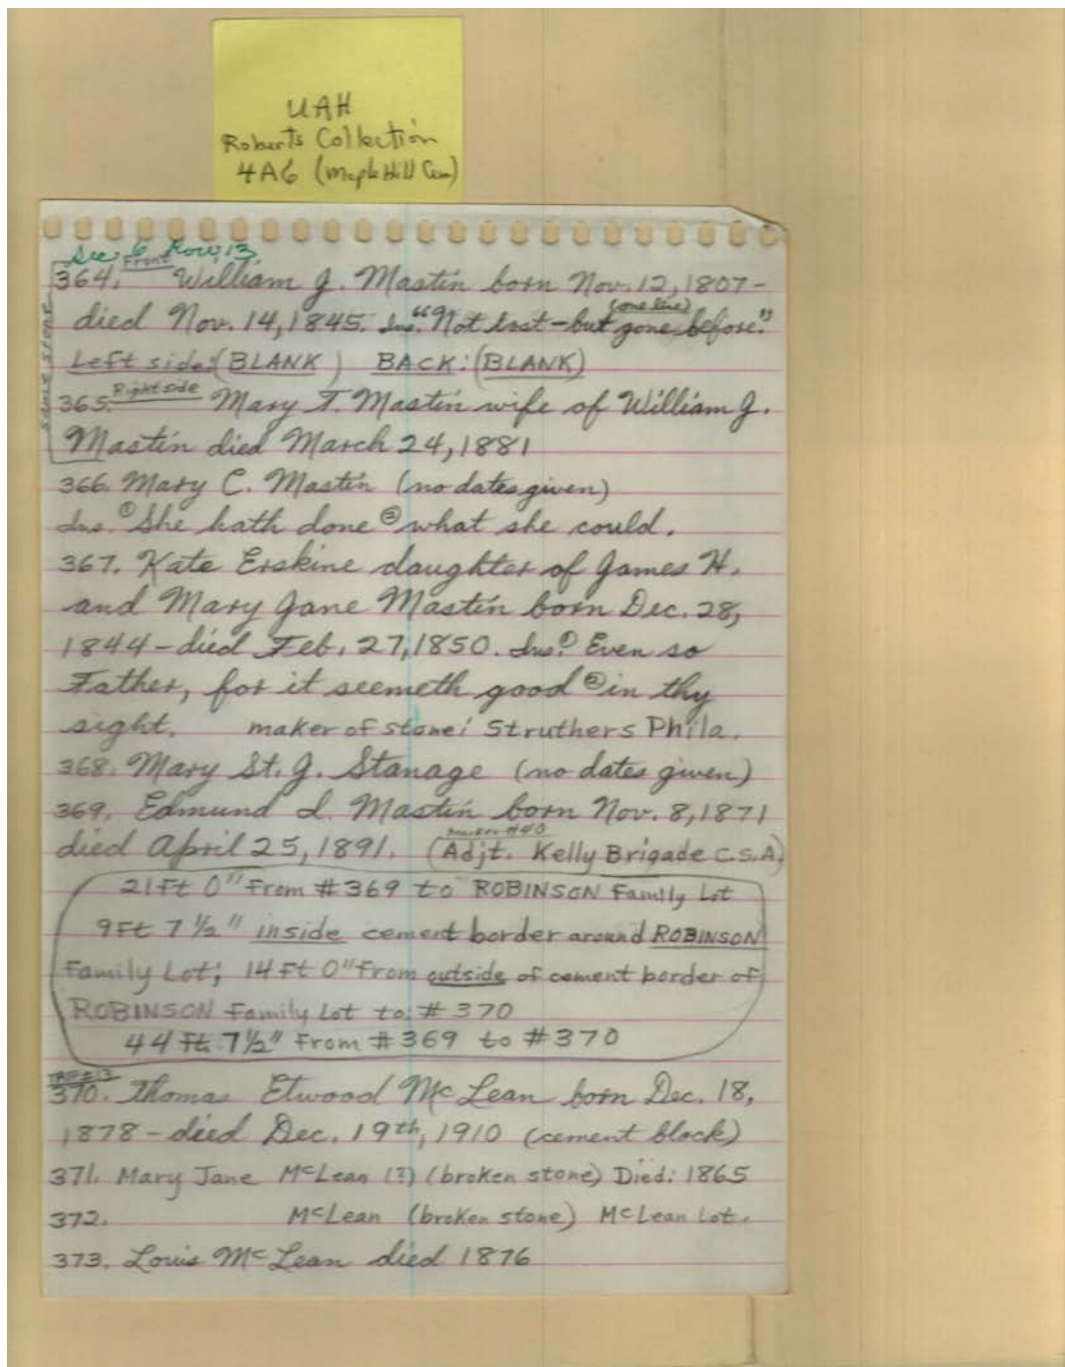 UAH
Roberts Collection
4A6 (Maple Hill Cem)
Sec. 6 Row 13
Front
364. William J. Mastin born Nov. 12, 1807-
(one line)
died Nov. 14, 1845. Ins. "Not lost-but gone before."
Left side: (BLANK) BACK: (BLANK)
same stone
365. Right side Mary T. Mastin wife of William J.
Mastin died March 24, 1881
366. Mary C. Mastin (no dates given)
Ins. ① She hath done ② what she could.
367. Kate Erskine daughter of James H.
and Mary Jane Mastin born Dec. 28,
1844-died Feb. 27, 1850. Ins. ① Even so
Father, for it seemeth good ② in thy
sight. maker of stone: Struthers Phila.
368. Mary St. J. Stanage (no dates given)
369. Edmund I. Mastin born Nov. 8, 1871
marker #40
died April 25, 1891. (Adjt. Kelly Brigade C.S.A)
21 Ft 0" From #369 to ROBINSON Family Lot
9 Ft 7 ½" inside cement border around ROBINSON
Family Lot; 14 Ft 0" From outside of cement border of
ROBINSON Family Lot to #370
44 Ft 7½" From #369 to #370
370. Thomas Etwood McLean born Dec. 18,
1878-died Dec. 19th, 1910 (cement block)
371. Mary Jane McLean (?) (broken stone) Died: 1865
372. McLean (broken stone) McLean Lot.
373. Louis McLean died 1876